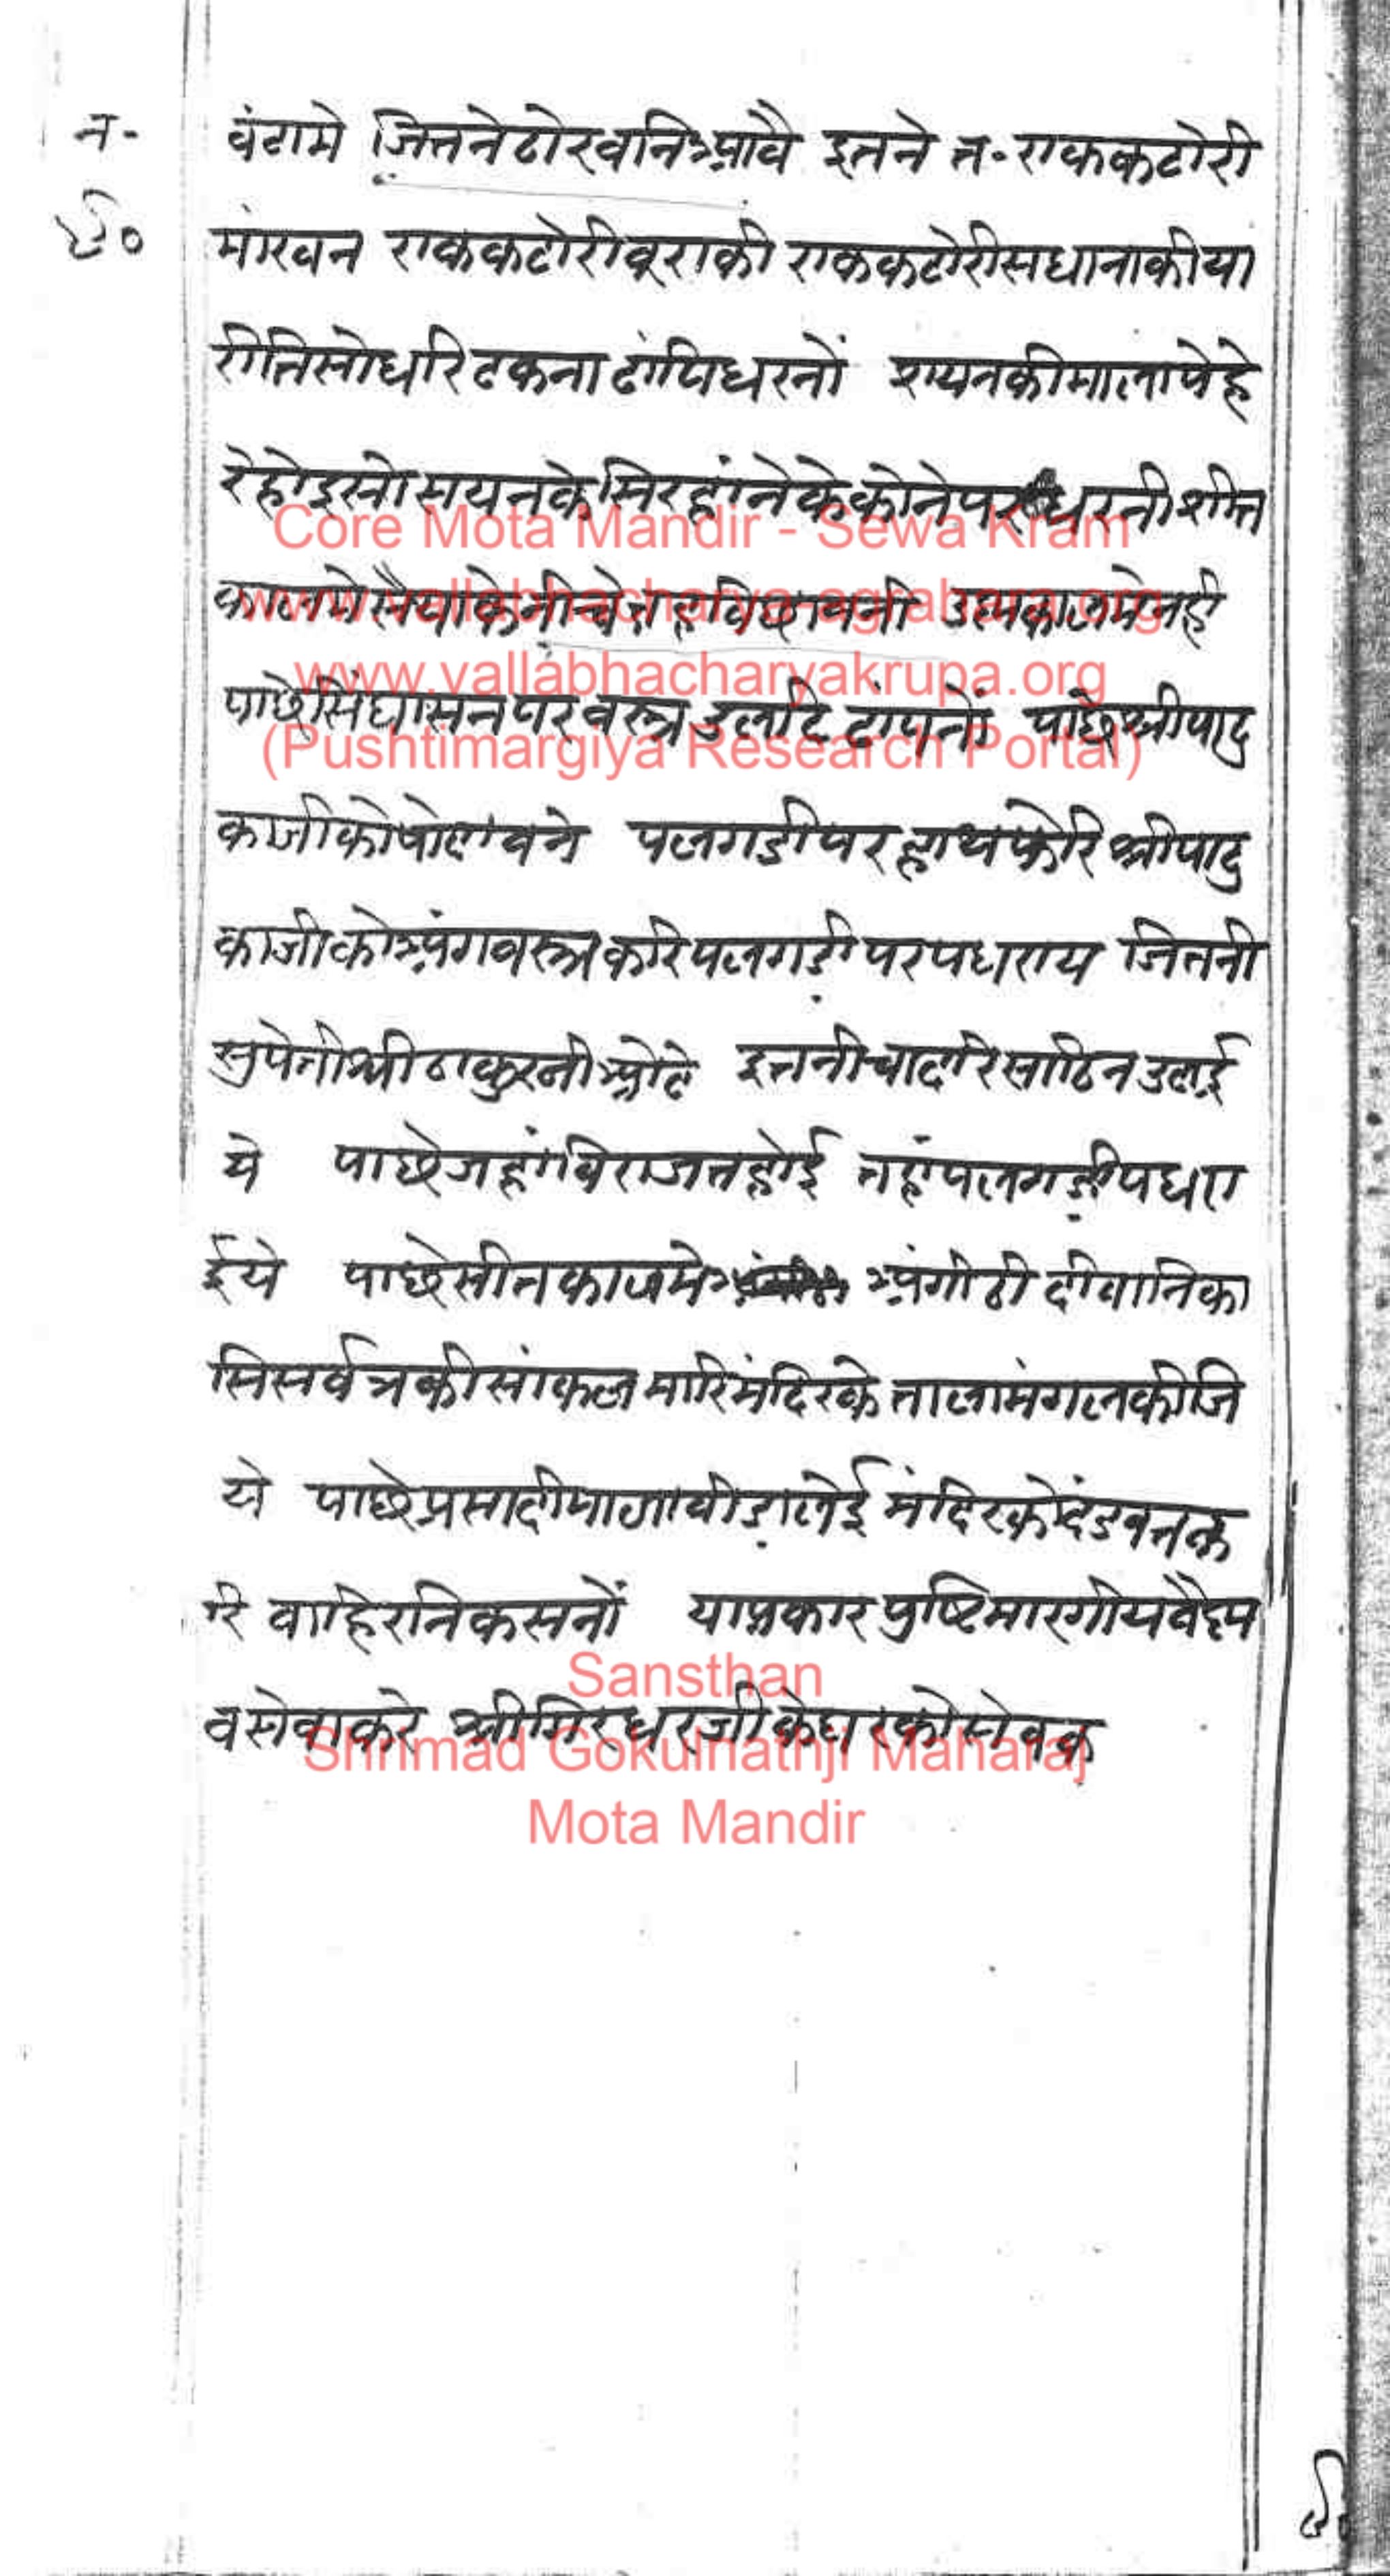 न॰
६०
वंटामे जितने ठोर वनि आवै इतने त॰ एक कटोरी
मांखन एक कटोरी वूराकी एक कटोरी सधानाकी या
रीतिसो धरि ढकना ढांपि धरनों शयनकी माला पेहे
रे होइ सो सयनके सिरहांनेके कोने पर धरनी शीत
कालमे सैयाके नीचे विछावनी उष्मकालमे नही
पाछे सिंघासन पर वस्त्र उलटि ढांपनों पाछे श्रीपादु
काजीको पोढावने पलगडी पर हाथ फेरि श्रीपादु
काजीको अंगवस्त्र करि पलगडी पर पधराय जितनी
सुपेती श्रीठाकुरजी ओढे इतनी चादरि साठिन उढाई
ये पाछे जहां विराजत होई तहां पलगडी पधरा
ईये पाछे सीतकालमे अंगीठी दीवा निका
सि सर्वत्रकी सांकल मारि मंदिरके ताला मंगल कीजि
ये पाछे प्रसादी माला वीडा लेई मंदिरको दंडवत क
रि वाहिर निकसनों या प्रकार पुष्टिमारगीय वैष्ण
व सेवा करे श्रीगिरधरजीके घरको सेवक
Core Mota Mandir - Sewa Kram
www.vallabhacharya-agrabara.org
www.vallabhacharyakrupa.org
(Pushtimargiya Research Portal)
Sansthan
Shrimad Gokulnathji Maharaj
Mota Mandir